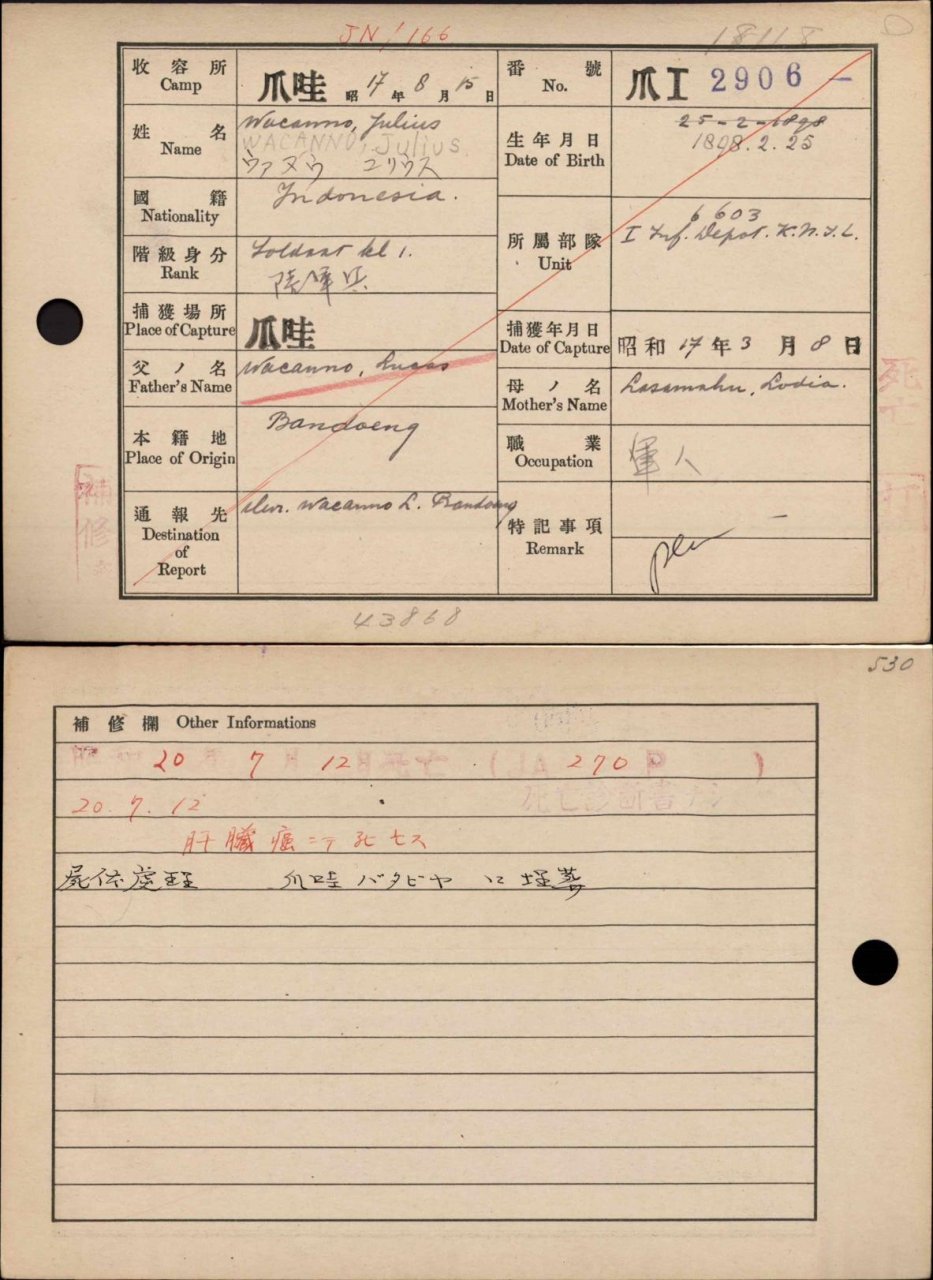 JN! 166
18118
收容所 Camp
爪哇 昭17年8月15日
番號 No.
爪I 2906 -
姓名 Name
Wacanno, Julius
WACANNO, Julius
ヴァヌウ ユリウス
生年月日 Date of Birth
25-2-1898
1898.2.25
國籍 Nationality
Indonesia.
所屬部隊 Unit
6603
I Inf. Depot. K.N.I.L.
階級身分 Rank
Soldaat kl 1.
捕獲場所 Place of Capture
爪哇
捕獲年月日 Date of Capture
昭和17年3月8日
父ノ名 Father's Name
Wacanno, Lucas
母ノ名 Mother's Name
Lasamahu, Lodia.
本籍地 Place of Origin
Bandoeng
職業 Occupation
軍人
通報先 Destination of Report
Mevr. Wacanno L. Bandoeng
特記事項 Remark
死亡
補修
43868
530
補修欄 Other Informations
昭和20年7月12日死亡 (JA 270 P )
20.7.12
死亡診斷書ナシ
肝臓癌ニテ死亡ス
屍体處理 爪哇バタビヤ ニ埋葬